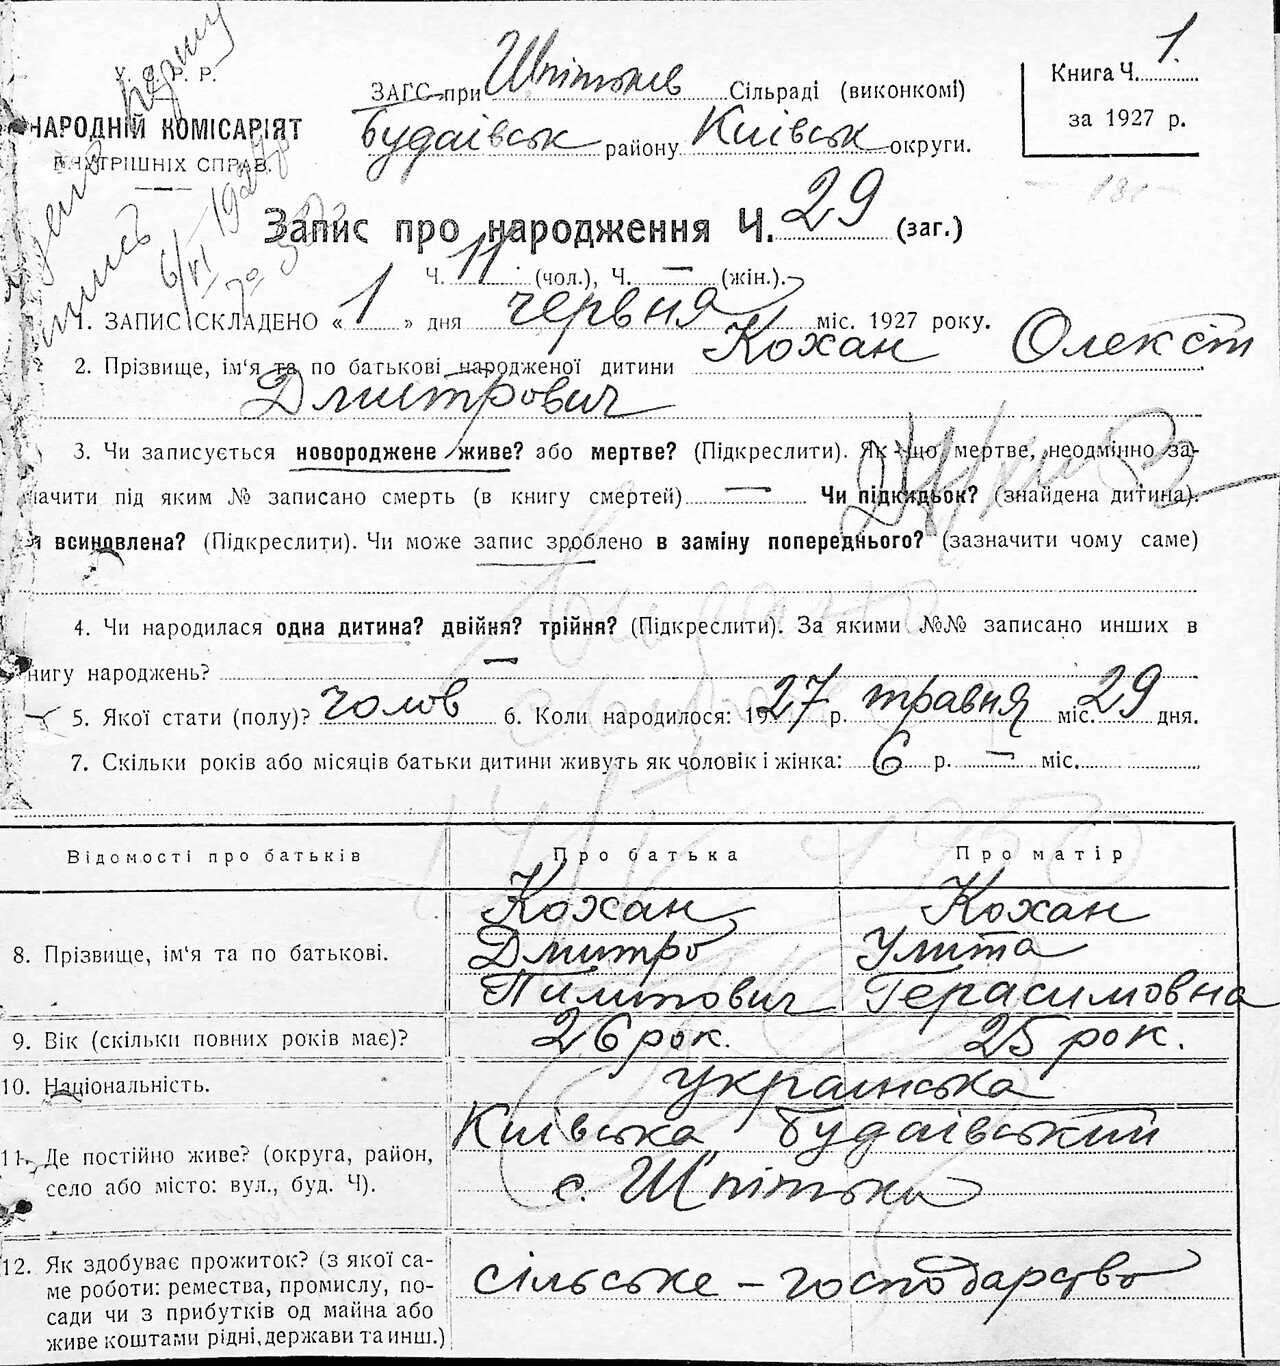 У. С. Р. Р.
НАРОДНІЙ КОМІСАРІЯТ
ВНУТРІШНІХ СПРАВ.
ЗАГС при Шпітьків Сільраді (виконкомі)
Будаівськ району Київськ округи.
Книга Ч. 1.
за 1927 р.
Запис про народження Ч. 29 (заг.)
Ч. 11 (чол.), Ч. — (жін.).
1. ЗАПИС СКЛАДЕНО « 1 » дня червня міс. 1927 року.
2. Прізвище, ім'я та по батькові народженої дитини Кохан Олексій
Дмитрович
3. Чи записується новороджене живе? або мертве? (Підкреслити). Як що мертве, неодмінно за-
начити під яким № записано смерть (в книгу смертей) — Чи підкидьок? (знайдена дитина).
и всиновлена? (Підкреслити). Чи може запис зроблено в заміну попереднього? (зазначити чому саме)
4. Чи народилася одна дитина? двійня? трійня? (Підкреслити). За якими №№ записано инших в
нигу народжень? —
5. Якої стати (полу)? чолов 6. Коли народилося: 1927 р. травня міс. 29 дня.
7. Скільки років або місяців батьки дитини живуть як чоловік і жінка: 6 р. — міс.
Відомості про батьків Про батька Про матір
8. Прізвище, ім'я та по батькові.
Кохан Кохан
Дмитро Улита
Пилипович Герасимовна
9. Вік (скільки повних років має)? 26 рок. 25 рок.
10. Національність. українська
11. Де постійно живе? (округа, район,
село або місто: вул., буд. Ч).
Київська Будаівський
с. Шпітьки
12. Як здобуває прожиток? (з якої са-
ме роботи: ремества, промислу, по-
сади чи з прибутків од майна або
живе коштами рідні, держави та инш.)
сільське – господарство